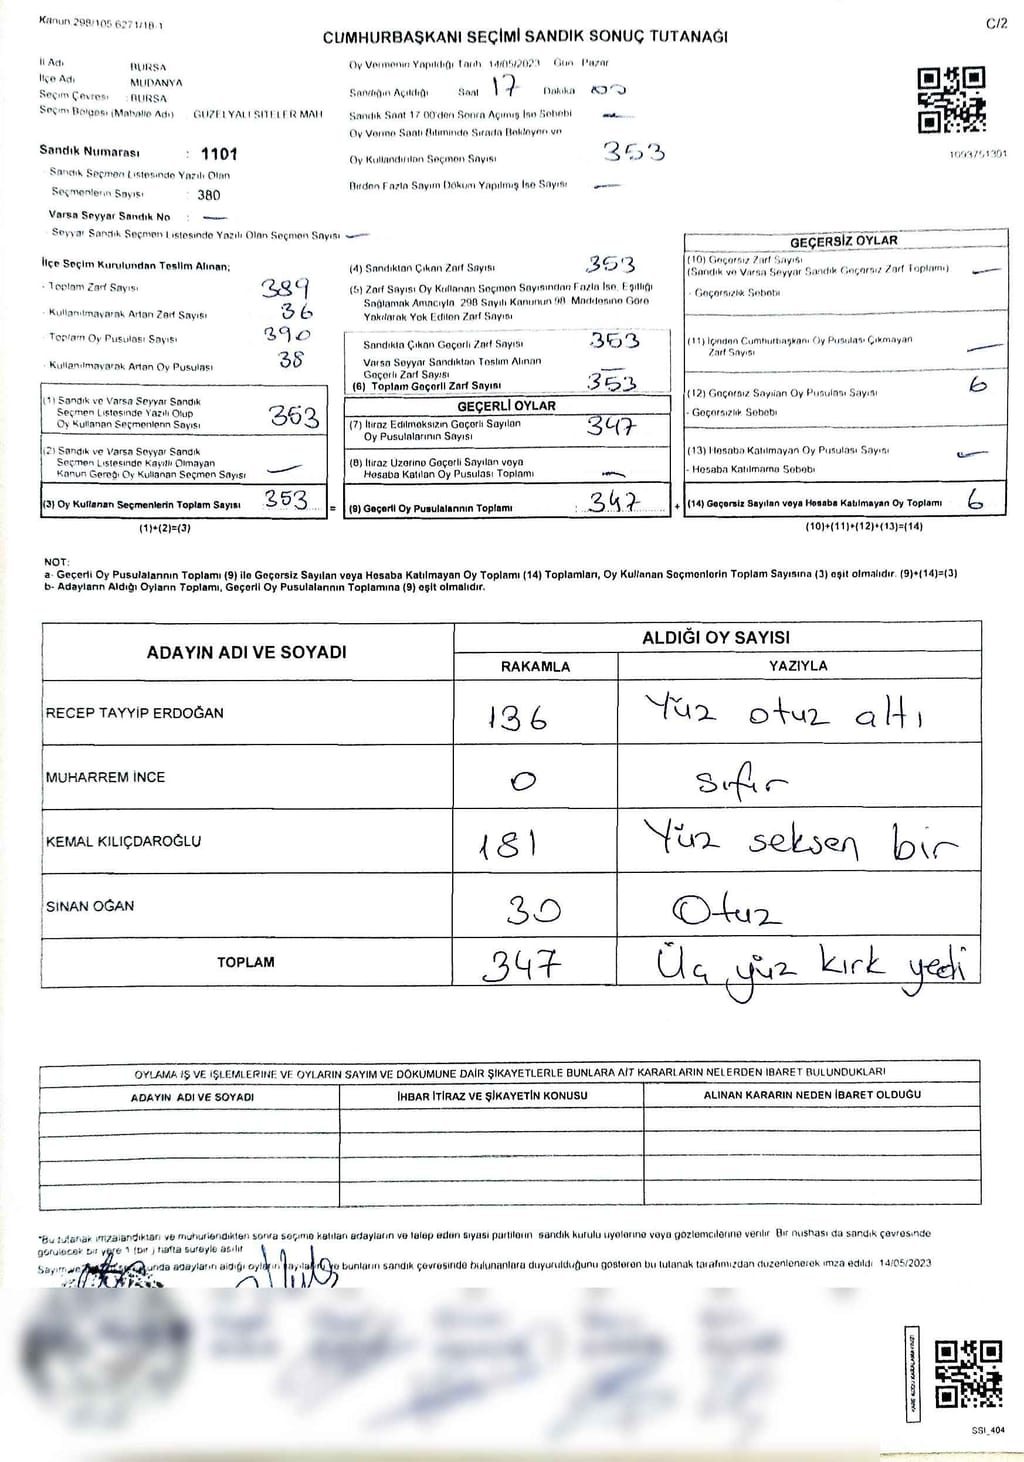 Kanun 298/105 6271/18-1
C/2
CUMHURBAŞKANI SEÇİMİ SANDIK SONUÇ TUTANAĞI
İl Adı BURSA
İlçe Adı MUDANYA
Seçim Çevresi : BURSA
Seçim Bölgesi (Mahalle Adı) GÜZELYALI SİTELER MAH
Sandık Numarası : 1101
Sandık Seçmen Listesinde Yazılı Olan
Seçmenlerin Sayısı : 380
Varsa Seyyar Sandık No : —
Seyyar Sandık Seçmen Listesinde Yazılı Olan Seçmen Sayısı —
Oy Vermenin Yapıldığı Tarih 14/05/2023 Gün Pazar
Sandığın Açıldığı Saat 17 Dakika 00
Sandık Saat 17 00'den Sonra Açılmış İse Sebebi —
Oy Verme Saati Bitiminde Sırada Bekleyen ve
Oy Kullandırılan Seçmen Sayısı 353
Birden Fazla Sayım Döküm Yapılmış İse Sayısı —
1093751301
İlçe Seçim Kurulundan Teslim Alınan;
- Toplam Zarf Sayısı 389
- Kullanılmayarak Artan Zarf Sayısı 36
- Toplam Oy Pusulası Sayısı 390
- Kullanılmayarak Artan Oy Pusulası 38
(1) Sandık ve Varsa Seyyar Sandık
Seçmen Listesinde Yazılı Olup
Oy Kullanan Seçmenlerin Sayısı 353
(2) Sandık ve Varsa Seyyar Sandık
Seçmen Listesinde Kayıtlı Olmayan
Kanun Gereği Oy Kullanan Seçmen Sayısı —
(3) Oy Kullanan Seçmenlerin Toplam Sayısı 353
(1)+(2)=(3)
=
(4) Sandıktan Çıkan Zarf Sayısı 353
(5) Zarf Sayısı Oy Kullanan Seçmen Sayısından Fazla İse, Eşitliği
Sağlamak Amacıyla 298 Sayılı Kanunun 98 Maddesine Göre
Yakılarak Yok Edilen Zarf Sayısı
Sandıkta Çıkan Geçerli Zarf Sayısı 353
Varsa Seyyar Sandıktan Teslim Alınan
Geçerli Zarf Sayısı —
(6) Toplam Geçerli Zarf Sayısı 353
GEÇERLİ OYLAR
(7) İtiraz Edilmeksizin Geçerli Sayılan
Oy Pusulalarının Sayısı 347
(8) İtiraz Üzerine Geçerli Sayılan veya
Hesaba Katılan Oy Pusulası Toplamı —
(9) Geçerli Oy Pusulalarının Toplamı : 347
+
GEÇERSİZ OYLAR
(10) Geçersiz Zarf Sayısı
(Sandık ve Varsa Seyyar Sandık Geçersiz Zarf Toplamı) —
- Geçersizlik Sebebi
(11) İçinden Cumhurbaşkanı Oy Pusulası Çıkmayan
Zarf Sayısı —
(12) Geçersiz Sayılan Oy Pusulası Sayısı 6
- Geçersizlik Sebebi
(13) Hesaba Katılmayan Oy Pusulası Sayısı —
- Hesaba Katılmama Sebebi
(14) Geçersiz Sayılan veya Hesaba Katılmayan Oy Toplamı 6
(10)+(11)+(12)+(13)=(14)
NOT:
a- Geçerli Oy Pusulalarının Toplamı (9) ile Geçersiz Sayılan veya Hesaba Katılmayan Oy Toplamı (14) Toplamları, Oy Kullanan Seçmenlerin Toplam Sayısına (3) eşit olmalıdır. (9)+(14)=(3)
b- Adayların Aldığı Oyların Toplamı, Geçerli Oy Pusulalarının Toplamına (9) eşit olmalıdır.
ADAYIN ADI VE SOYADI
ALDIĞI OY SAYISI
RAKAMLA YAZIYLA
RECEP TAYYİP ERDOĞAN 136 Yüz otuz altı
MUHARREM İNCE 0 sıfır
KEMAL KILIÇDAROĞLU 181 Yüz seksen bir
SİNAN OĞAN 30 Otuz
TOPLAM 347 Üç yüz kırk yedi
OYLAMA İŞ VE İŞLEMLERİNE VE OYLARIN SAYIM VE DÖKÜMÜNE DAİR ŞİKAYETLERLE BUNLARA AİT KARARLARIN NELERDEN İBARET BULUNDUKLARI
ADAYIN ADI VE SOYADI İHBAR İTİRAZ VE ŞİKAYETİN KONUSU ALINAN KARARIN NEDEN İBARET OLDUĞU
*Bu tutanak imzalandıktan ve mühürlendikten sonra seçime katılan adayların ve talep eden siyasi partilerin sandık kurulu üyelerine veya gözlemcilerine verilir Bir nüshası da sandık çevresinde
görülecek bir yere 1 (bir) hafta süreyle asılır
adayların aldığı oyların bunların sandık çevresinde bulunanlara duyurulduğunu gösteren bu tutanak tarafımızdan düzenlenerek imza edildi 14/05/2023
SSI_404